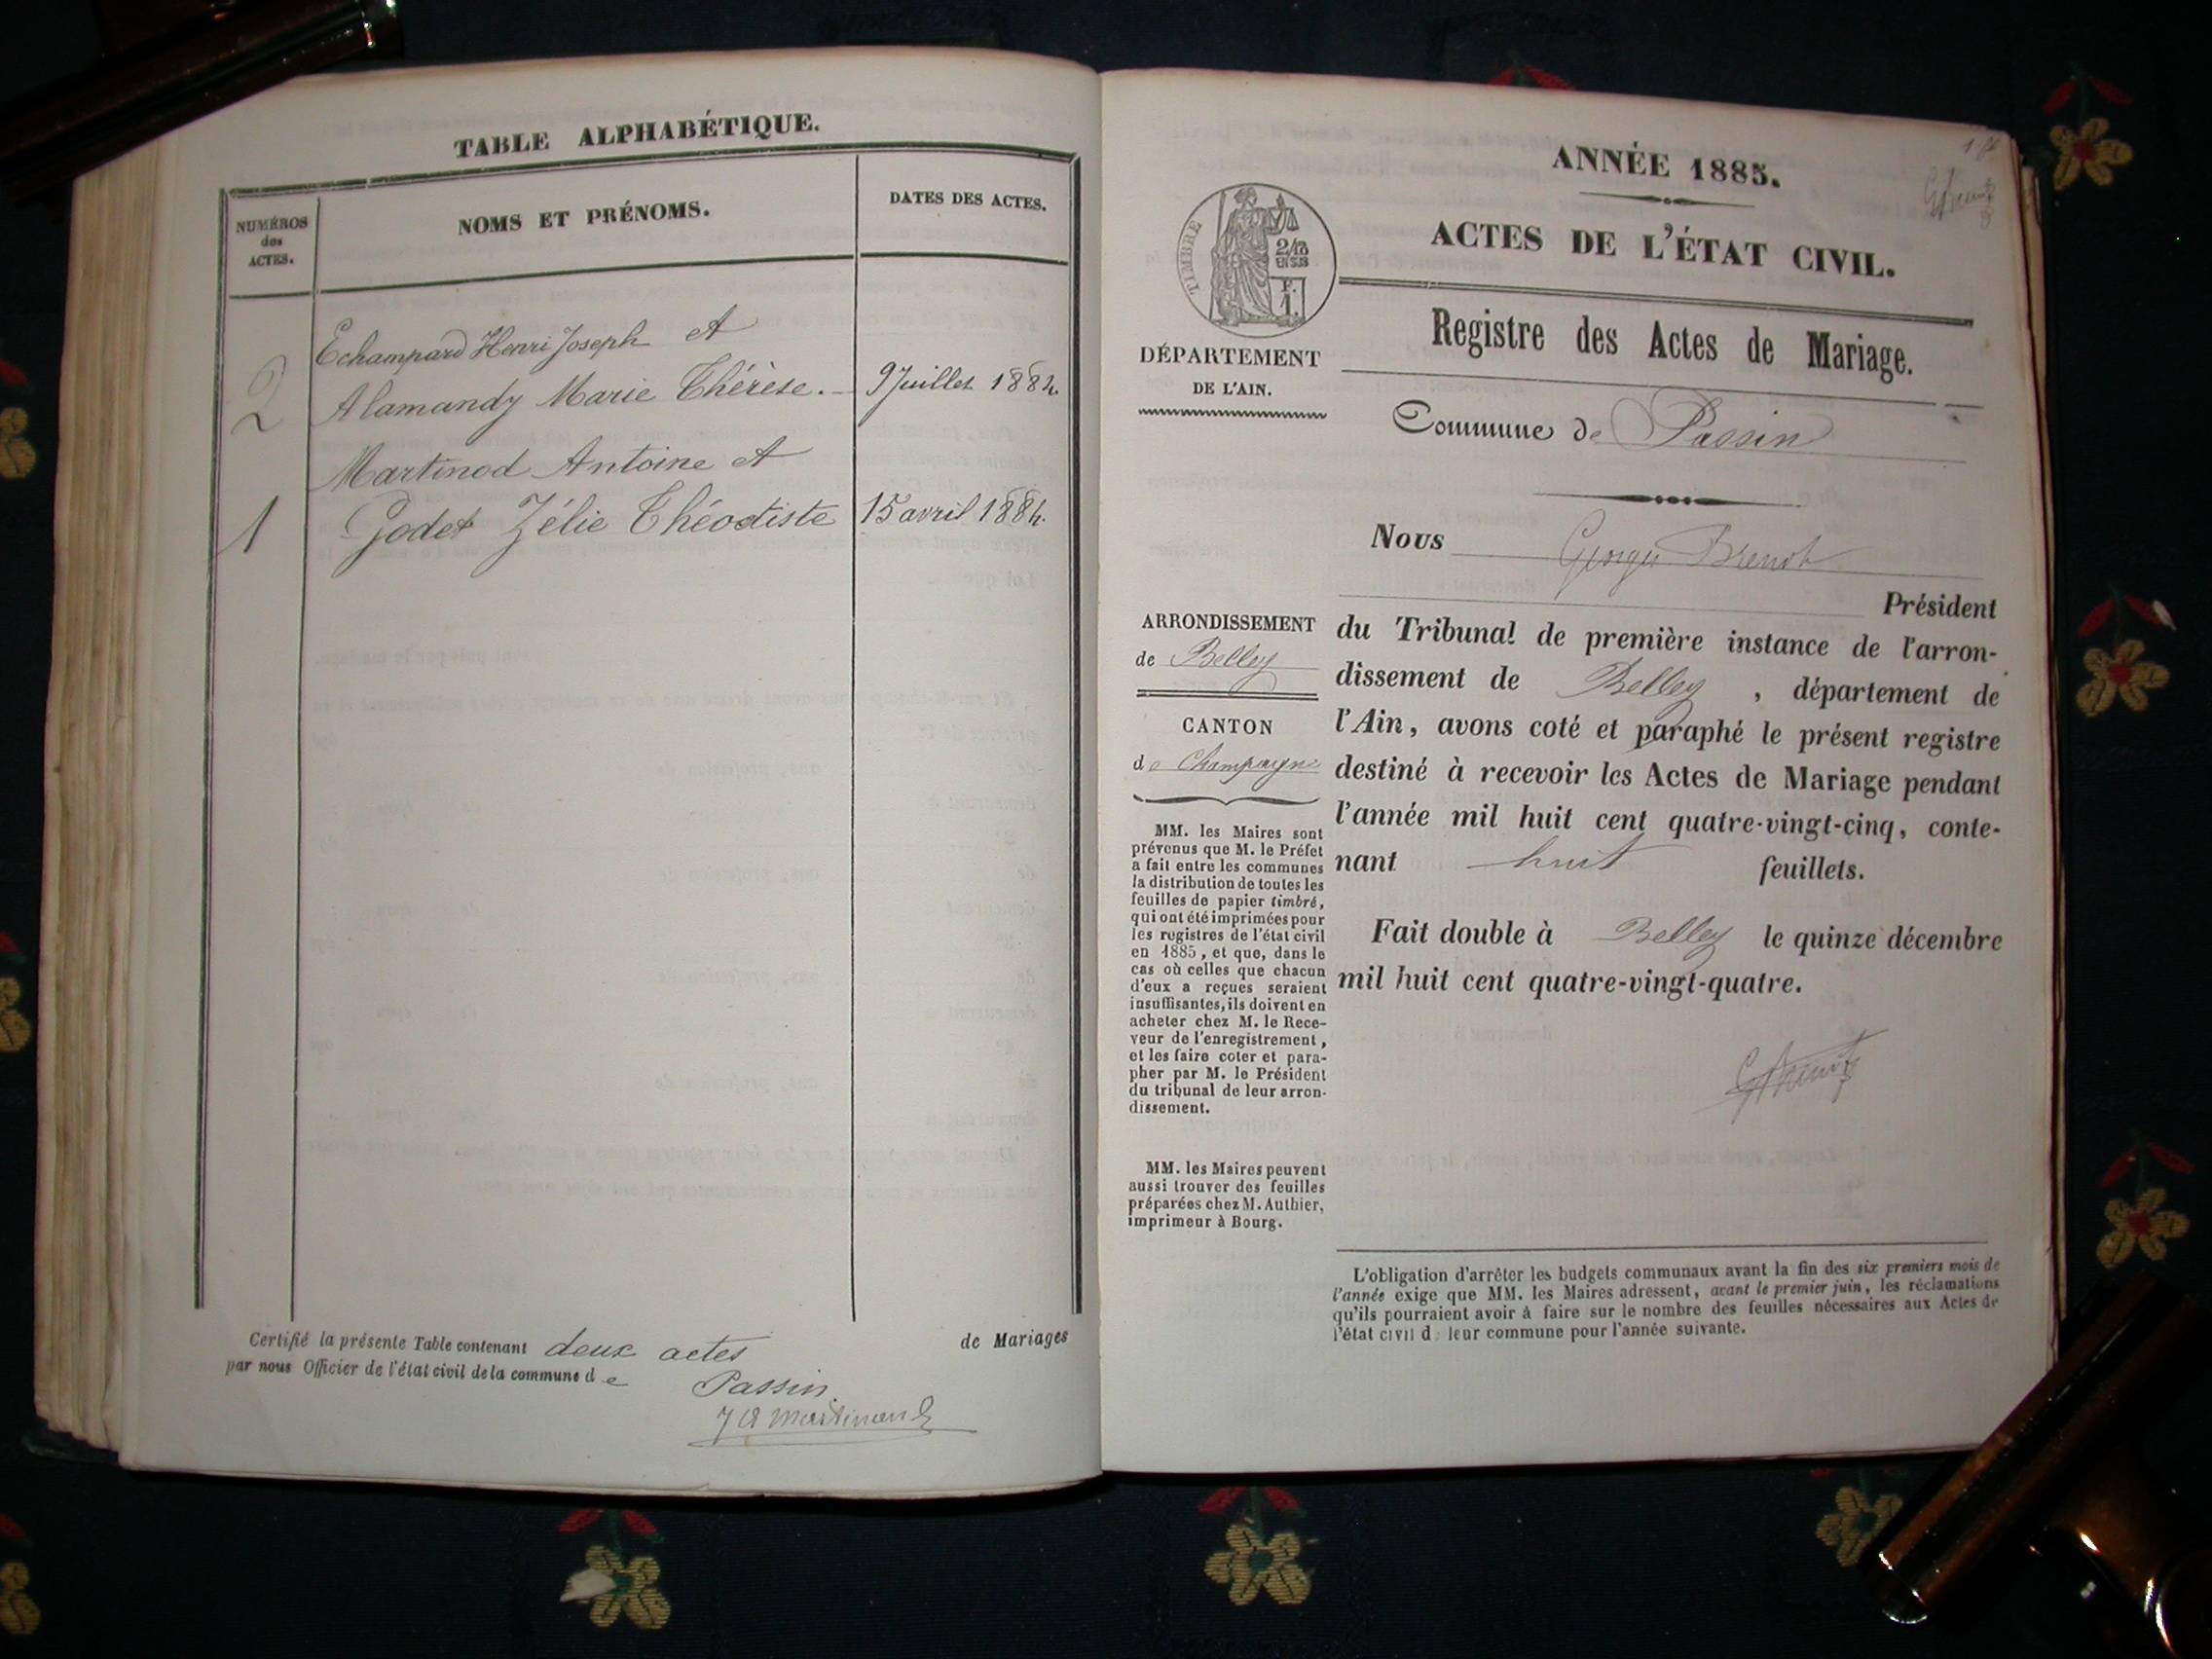 TABLE ALPHABÉTIQUE.
NUMÉROS
des
ACTES.
NOMS ET PRÉNOMS.
DATES DES ACTES.
Echampard Henri Joseph et
2 Alamandy Marie Thérèse. 9 Juillet 1884.
Martinod Antoine et
1 Godet Zélie Théodiste 15 avril 1884.
Certifié la présente Table contenant deux actes de Mariages
par nous Officier de l'état civil de la commune de Passin.
ANNÉE 1885.
ACTES DE L'ÉTAT CIVIL.
TIMBRE
2/10
EN SUS
F.
1.
DÉPARTEMENT
DE L'AIN.
Registre des Actes de Mariage.
Commune de Passin
Nous Georges Brenot
Président
du Tribunal de première instance de l'arron-
dissement de Belley, département de
l'Ain, avons coté et paraphé le présent registre
destiné à recevoir les Actes de Mariage pendant
l'année mil huit cent quatre-vingt-cinq, conte-
nant huit feuillets.
Fait double à Belley le quinze décembre
mil huit cent quatre-vingt-quatre.
ARRONDISSEMENT
de Belley
CANTON
de Champagne
MM. les Maires sont
prévenus que M. le Préfet
a fait entre les communes
la distribution de toutes les
feuilles de papier timbré,
qui ont été imprimées pour
les registres de l'état civil
en 1885, et que, dans le
cas où celles que chacun
d'eux a reçues seraient
insuffisantes, ils doivent en
acheter chez M. le Rece-
veur de l'enregistrement,
et les faire coter et para-
pher par M. le Président
du tribunal de leur arron-
dissement.
MM. les Maires peuvent
aussi trouver des feuilles
préparées chez M. Authier,
imprimeur à Bourg.
L'obligation d'arrêter les budgets communaux avant la fin des six premiers mois de
l'année exige que MM. les Maires adressent, avant le premier juin, les réclamations
qu'ils pourraient avoir à faire sur le nombre des feuilles nécessaires aux Actes de
l'état civil de leur commune pour l'année suivante.